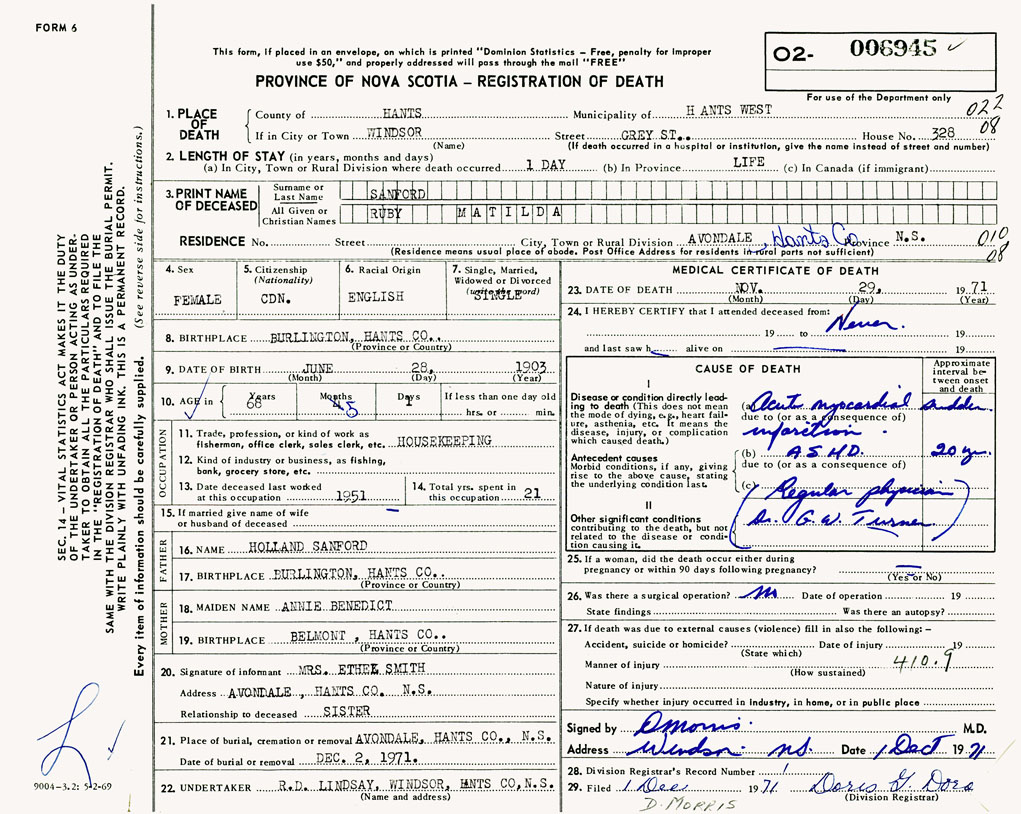 FORM 6
This form, if placed in an envelope, on which is printed "Dominion Statistics – Free, penalty for improper
use $50," and properly addressed will pass through the mail "FREE"
O2- 006945 ✓
PROVINCE OF NOVA SCOTIA – REGISTRATION OF DEATH
For use of the Department only
022
08
1. PLACE OF DEATH
County of HANTS Municipality of H ANTS WEST
If in City or Town WINDSOR Street GREY ST.. House No. 328
(Name) (If death occurred in a hospital or institution, give the name instead of street and number)
2. LENGTH OF STAY (in years, months and days)
(a) In City, Town or Rural Division where death occurred 1 DAY (b) In Province LIFE (c) In Canada (if immigrant)
3. PRINT NAME OF DECEASED
Surname or Last Name SANFORD
All Given or Christian Names RUBY MATILDA
RESIDENCE No. Street City, Town or Rural Division AVONDALE, Hants Co Province N.S. 010
08
(Residence means usual place of abode. Post Office Address for residents in rural parts not sufficient)
4. Sex
FEMALE
5. Citizenship
(Nationality)
CDN.
6. Racial Origin
ENGLISH
7. Single, Married,
Widowed or Divorced
(write the word)
SINGLE
8. BIRTHPLACE BURLINGTON, HANTS CO..
(Province or Country)
9. DATE OF BIRTH JUNE 28, 1903
(Month) (Day) (Year)
10. AGE in Years Months Days If less than one day old
68 5 1 hrs. or min.
OCCUPATION
11. Trade, profession, or kind of work as
fisherman, office clerk, sales clerk, etc. HOUSEKEEPING
12. Kind of industry or business, as fishing,
bank, grocery store, etc.
13. Date deceased last worked
at this occupation 1951
14. Total yrs. spent in
this occupation 21
15. If married give name of wife
or husband of deceased
FATHER
16. NAME HOLLAND SANFORD
17. BIRTHPLACE BURLINGTON, HANTS CO..
(Province or Country)
MOTHER
18. MAIDEN NAME ANNIE BENEDICT
19. BIRTHPLACE BELMONT , HANTS CO..
(Province or Country)
20. Signature of informant MRS. ETHEL SMITH
Address AVONDALE , HANTS CO. N.S.
Relationship to deceased SISTER
21. Place of burial, cremation or removal AVONDALE, HANTS CO., N.S.
Date of burial or removal DEC. 2, 1971.
22. UNDERTAKER R.D. LINDSAY, WINDSOR, HNTS CO,N.S.
(Name and address)
MEDICAL CERTIFICATE OF DEATH
23. DATE OF DEATH NOV. 29, 1971
(Month) (Day) (Year)
24. I HEREBY CERTIFY that I attended deceased from: Never.
19 to 19
and last saw h alive on 19
CAUSE OF DEATH
Approximate
interval be-
tween onset
and death
I
Disease or condition directly lead-
ing to death (This does not mean
the mode of dying, e.g., heart fail-
ure, asthenia, etc. It means the
disease, injury, or complication
which caused death.)
(a) Acute myocardial sudden.
due to (or as a consequence of)
infarction.
Antecedent causes
Morbid conditions, if any, giving
rise to the above cause, stating
the underlying condition last.
(b) A.S.H.D. 20 yr.
due to (or as a consequence of)
(c) (Regular physician
II
Other significant conditions
contributing to the death, but not
related to the disease or condi-
tion causing it.
Dr. G.W. Turner)
25. If a woman, did the death occur either during
pregnancy or within 90 days following pregnancy?
(Yes or No)
26. Was there a surgical operation? no Date of operation 19
State findings Was there an autopsy?
27. If death was due to external causes (violence) fill in also the following: –
Accident, suicide or homicide? Date of injury 19
(State which)
Manner of injury 410.9
(How sustained)
Nature of injury
Specify whether injury occurred in industry, in home, or in public place
Signed by D Morris M.D.
Address Windsor NS. Date 1 Dec 1971
28. Division Registrar's Record Number 1
29. Filed 1 Dec 1971
(Division Registrar)
D. MORRIS
SEC. 14 – VITAL STATISTICS ACT MAKES IT THE DUTY
OF THE UNDERTAKER OR PERSON ACTING AS UNDER-
TAKER TO OBTAIN ALL THE PARTICULARS REQUIRED
IN THE "REGISTRATION OF DEATH" AND TO FILE THE
SAME WITH THE DIVISION REGISTRAR WHO SHALL ISSUE THE BURIAL PERMIT.
WRITE PLAINLY WITH UNFADING INK. THIS IS A PERMANENT RECORD.
Every item of information should be carefully supplied. (See reverse side for instructions.)
9004-3.2: 5-2-69